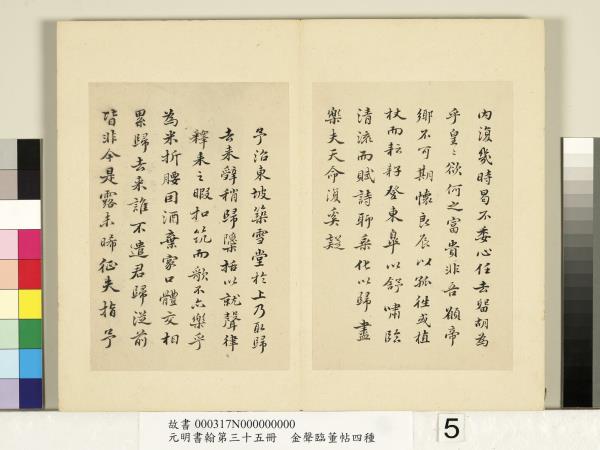 內復幾時曷不委心任去留胡為
乎皇〻欲何之富貴非吾願帝
鄉不可期懷良辰以孤往或植
杖而耘耔登東皋以舒嘯臨
清流而賦詩聊乘化以歸盡
樂夫天命復奚疑
予治東坡築雪堂於上乃取歸
去來辭稍歸隱括以就聲律
釋耒之暇扣筑而歌不亦樂乎
為米折腰因酒棄家口體交相
累歸去來誰不遣君歸從前
皆非今是露未晞征夫指予
故書 000317N000000000
元明書翰第三十五冊 金聲臨董帖四種
5